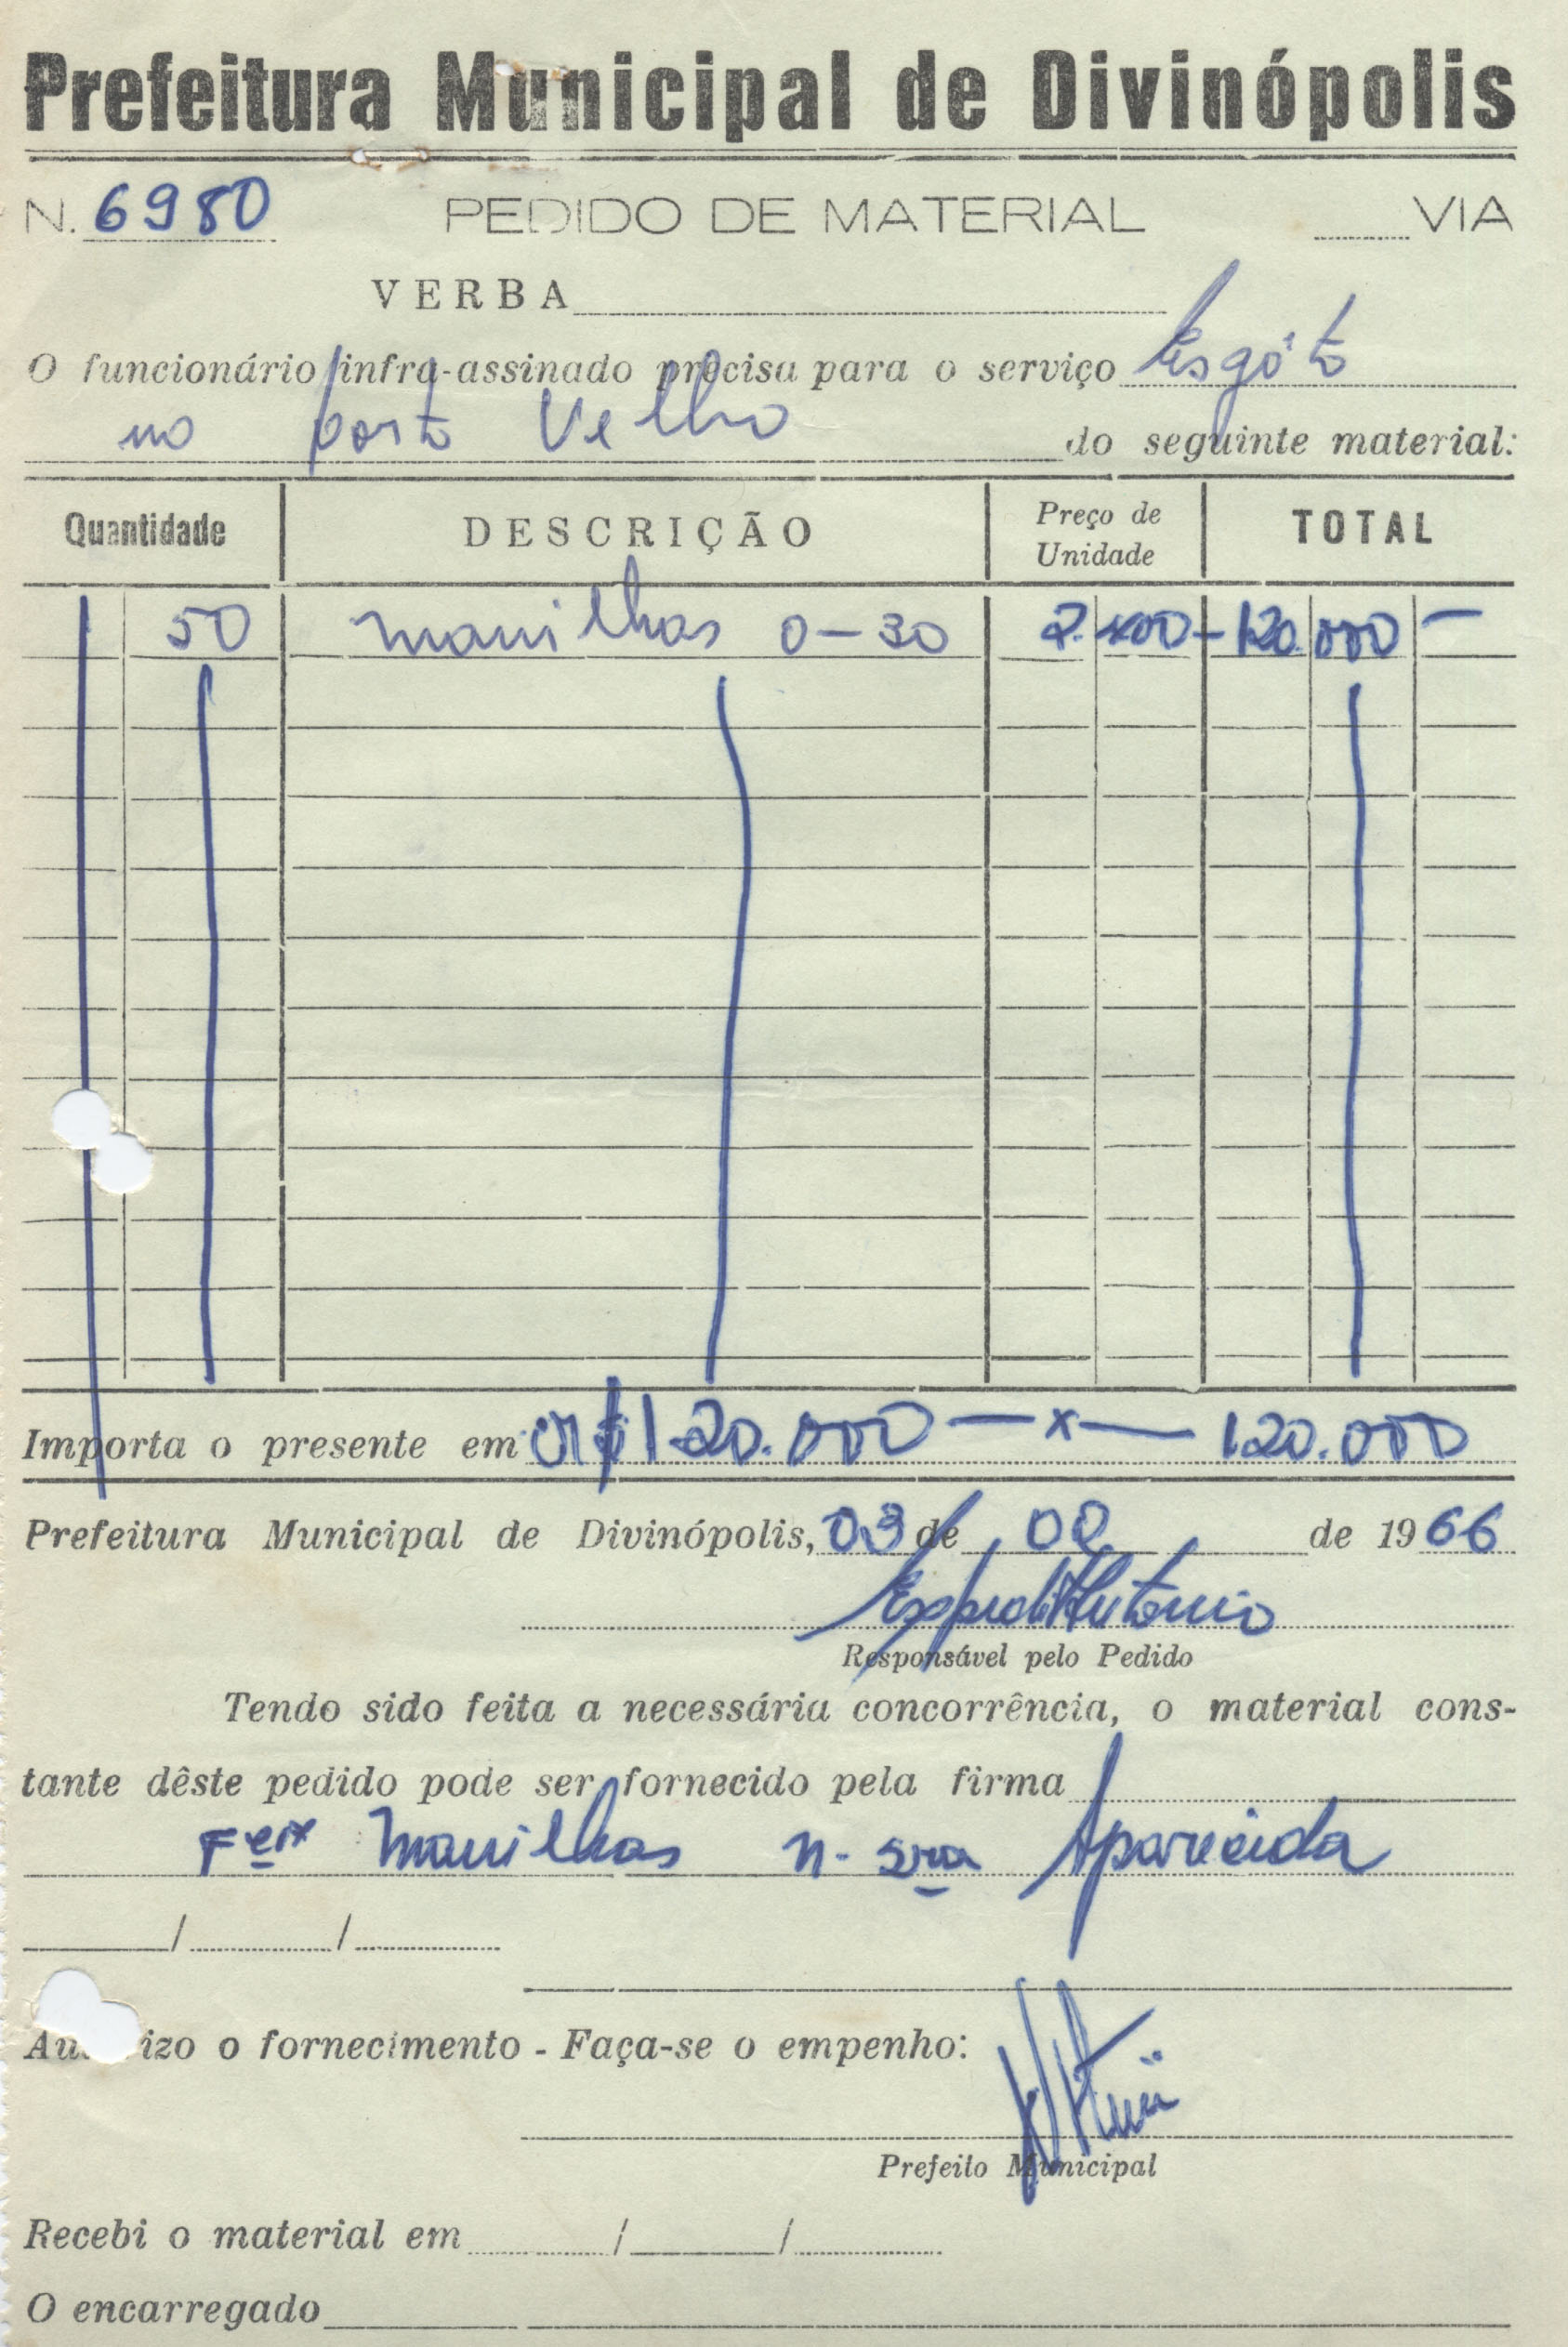 Prefeitura Municipal de Divinópolis
N. 6980 PEDIDO DE MATERIAL VIA
VERBA
O funcionário infra-assinado precisa para o serviço Esgôto
no porto Velho do seguinte material:
Quantidade DESCRIÇÃO Preço de Unidade TOTAL
50 manilhas 0-30 2.400- 120.000 -
Importa o presente em Cr$ 120.000 — x — 120.000
Prefeitura Municipal de Divinópolis, 03 de 02 de 1966
Responsável pelo Pedido
Tendo sido feita a necessária concorrência, o material cons-
tante dêste pedido pode ser fornecido pela firma
manilhas n. sra Aparecida
/ /
izo o fornecimento - Faça-se o empenho:
Prefeito Municipal
Recebi o material em / /
O encarregado